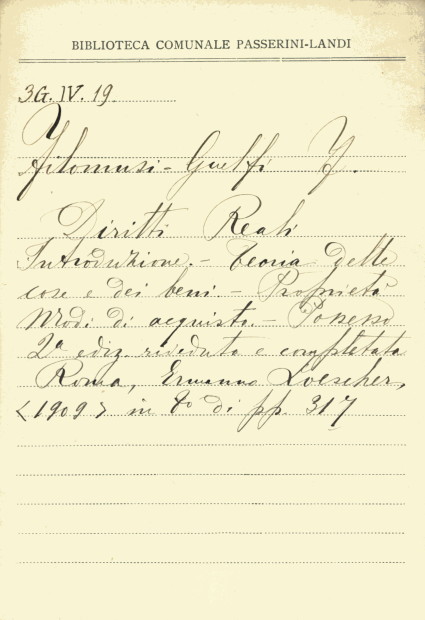 BIBLIOTECA COMUNALE PASSERINI-LANDI
3G. IV. 19
Filomusi-Guelfi F.
Diritti Reali
Introduzione. - Teoria delle
cose e dei beni. - Proprietà
Modi di acquisto. - Possesso
2ª ediz. riveduta e completata
Roma, Ermanno Loescher,
<1909> in 8º di pp. 317